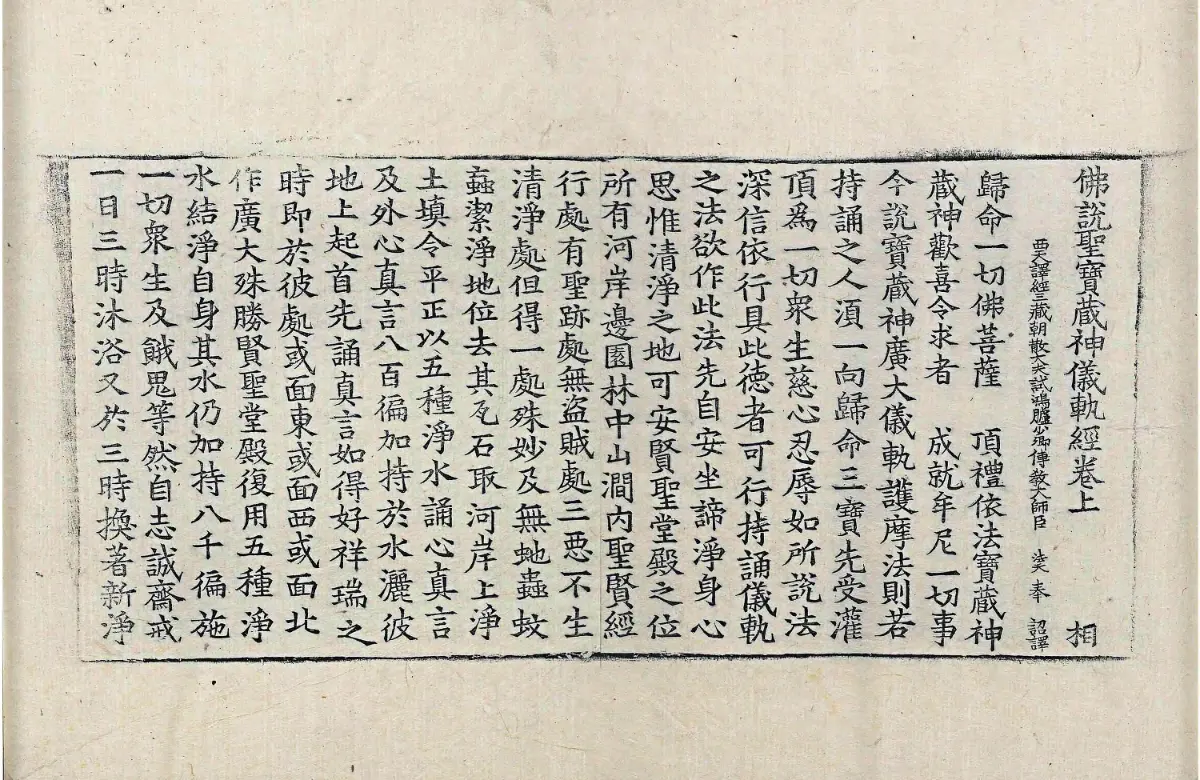 佛說聖寶藏神儀軌經卷上 相
西天譯經三藏朝散大夫試鴻臚少卿傳教大師臣 法天 奉 詔譯
歸命一切佛菩薩 頂禮依法寶藏神
藏神歡喜令求者 成就牟尼一切事
今說寶藏神廣大儀軌護摩法則若
持誦之人湏一向歸命三寶先受灌
頂爲一切衆生慈心忍辱如所說法
深信依行具此德者可行持誦儀軌
之法欲作此法先自安坐諦淨身心
思惟清淨之地可安賢聖堂殿之位
所有河岸邊園林中山澗內聖賢經
行處有聖跡處無盜賊處三惡不生
清淨處但得一處殊妙及無虵蟲蚊
蝱潔淨地位去其瓦石取河岸上淨
土填令平正以五種淨水誦心真言
及外心真言八百徧加持於水灑彼
地上起首先誦真言如得好祥瑞之
時即於彼處或面東或面西或面北
作廣大殊勝賢聖堂殿復用五種淨
水結淨自身其水仍加持八千徧施
一切衆生及餓鬼等然自志誠齋戒
一日三時沐浴又於三時換著新淨